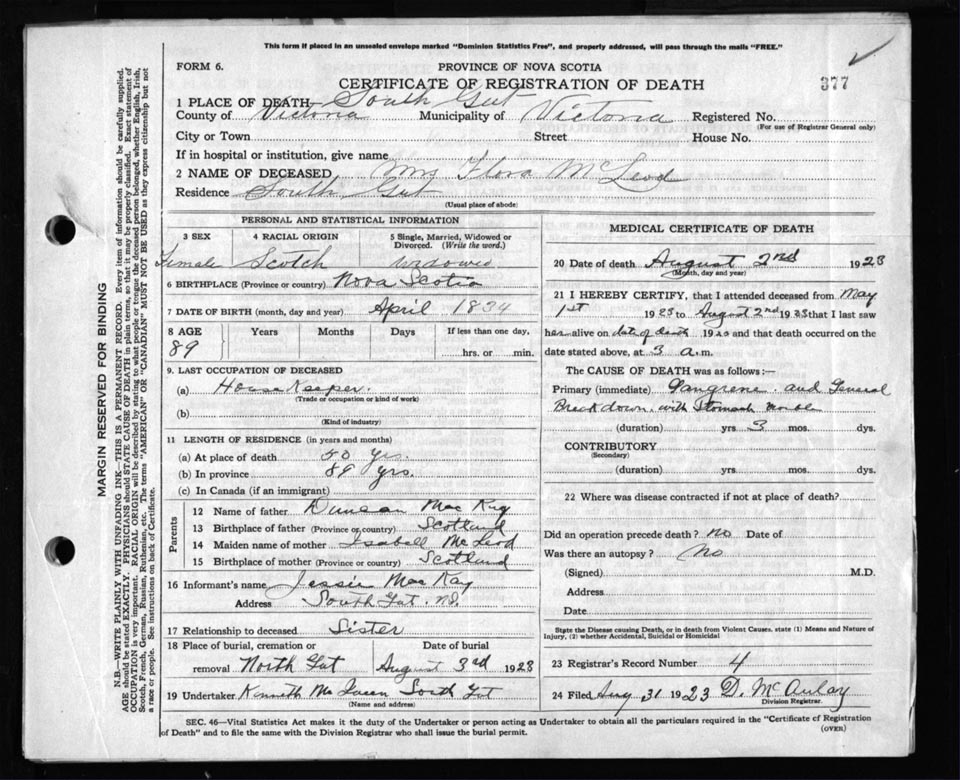 This form if placed in an unsealed envelope marked "Dominion Statistics Free", and properly addressed, will pass through the mails "FREE."
FORM 6.
PROVINCE OF NOVA SCOTIA
CERTIFICATE OF REGISTRATION OF DEATH
377
1 PLACE OF DEATH South Gut
County of Victoria Municipality of Victoria Registered No.
(For use of Registrar General only)
City or Town Street House No.
If in hospital or institution, give name
2 NAME OF DECEASED Mrs Flora McLeod
Residence South Gut
(Usual place of abode)
PERSONAL AND STATISTICAL INFORMATION
3 SEX 4 RACIAL ORIGIN 5 Single, Married, Widowed or Divorced. (Write the word.)
Female Scotch widowed
6 BIRTHPLACE (Province or country) Nova Scotia
7 DATE OF BIRTH (month, day and year) April 1834
8 AGE Years Months Days If less than one day,
89 hrs. or min.
9. LAST OCCUPATION OF DECEASED
(a) House Keeper.
(Trade or occupation or kind of work)
(b)
(Kind of industry)
11 LENGTH OF RESIDENCE (in years and months)
(a) At place of death 50 yrs.
(b) In province 89 yrs.
(c) In Canada (if an immigrant)
Parents
12 Name of father Duncan Mac Kay
13 Birthplace of father (Province or country) Scotland
14 Maiden name of mother Isabell McLeod
15 Birthplace of mother (Province or country) Scotland
16 Informant's name Jessie MacKay
Address South Gut. N.S.
17 Relationship to deceased Sister
18 Place of burial, cremation or removal North Gut
Date of burial August 3rd 1923
19 Undertaker Kenneth McQueen South Gut
(Name and address)
MEDICAL CERTIFICATE OF DEATH
20 Date of death August 2nd 1923
(Month, day and year)
21 I HEREBY CERTIFY, that I attended deceased from May
1st 1923 to August 2nd 1923 that I last saw
her alive on date of death 1923 and that death occurred on the
date stated above, at 3 a.m.
The CAUSE OF DEATH was as follows:—
Primary (immediate) Gangrene. and General
Breakdown. with Stomach trouble
(duration) yrs 3 mos. dys.
CONTRIBUTORY
(Secondary)
(duration) yrs. mos. dys.
22 Where was disease contracted if not at place of death?
Did an operation precede death? No Date of
Was there an autopsy? No
(Signed) M.D.
Address
Date
State the Disease causing Death, or in death from Violent Causes. state (1) Means and Nature of
Injury, (2) whether Accidental, Suicidal or Homicidal
23 Registrar's Record Number 4
24 Filed Aug 31 1923 D. McAulay
Division Registrar.
SEC. 46—Vital Statistics Act makes it the duty of the Undertaker or person acting as Undertaker to obtain all the particulars required in the "Certificate of Registration
of Death" and to file the same with the Division Registrar who shall issue the burial permit.
(OVER)
MARGIN RESERVED FOR BINDING
N.B.—WRITE PLAINLY WITH UNFADING INK—THIS IS A PERMANENT RECORD. Every item of information should be carefully supplied.
AGE should be stated EXACTLY. PHYSICIANS should STATE CAUSE OF DEATH in plain terms, so that it may be properly classified. Exact statement of
OCCUPATION is very important. RACIAL ORIGIN will be described by stating to what people or tongue the deceased person belonged, whether English, Irish,
Scotch, French, German, Russian, Ruthenian, etc. The terms "AMERICAN" OR "CANADIAN" MUST NOT BE USED as they express citizenship but not
a race or people. See instructions on back of Certificate.